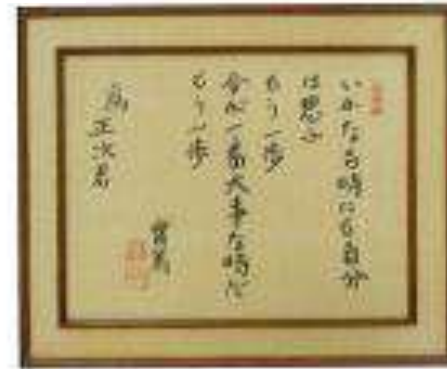 いかなる時にも自分
は思ふ
もう一歩
今が一番大事な時だ
もう一歩
実篤
正次君